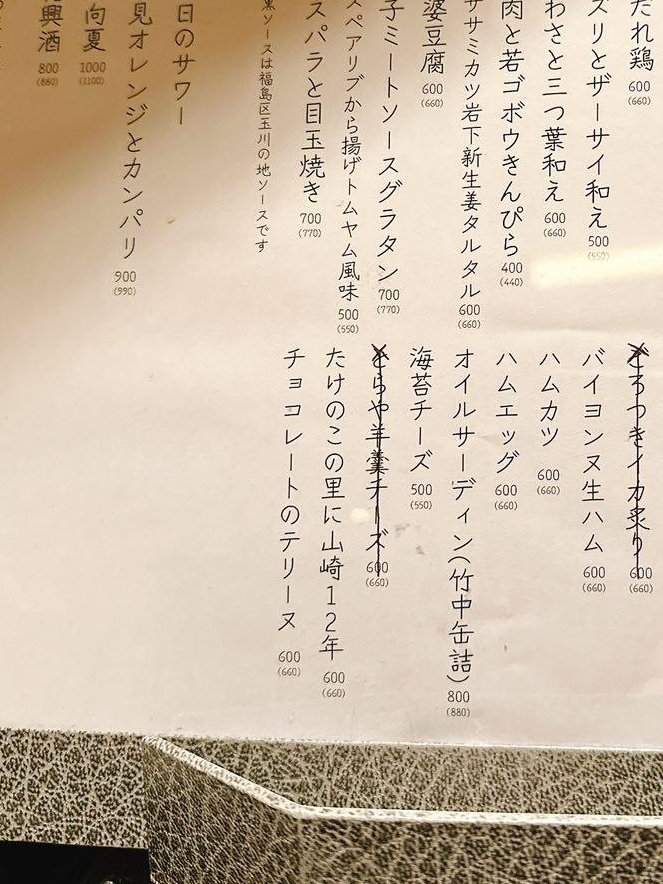 だれ鶏 600 (660)
ズリとザーサイ和え 500 (550)
わさと三つ葉和え 600 (660)
肉と若ゴボウきんぴら 400 (440)
ササミカツ岩下新生姜タルタル 600 (660)
婆豆腐 600 (660)
子ミートソースグラタン 700 (770)
スペアリブから揚げトムヤム風味 500 (550)
スパラと目玉焼き 700 (770)
ソースは福島区玉川の地ソースです
日のサワー
見オレンジとカンパリ 900 (990)
向夏 1000 (1100)
興酒 800 (880)
どろつきイカ炙り 600 (660)
バイヨンヌ生ハム 600 (660)
ハムカツ 600 (660)
ハムエッグ 600 (660)
オイルサーディン(竹中缶詰) 800 (880)
海苔チーズ 500 (550)
とらや羊羹チーズ 600 (660)
たけのこの里に山崎12年 600 (660)
チョコレートのテリーヌ 600 (660)